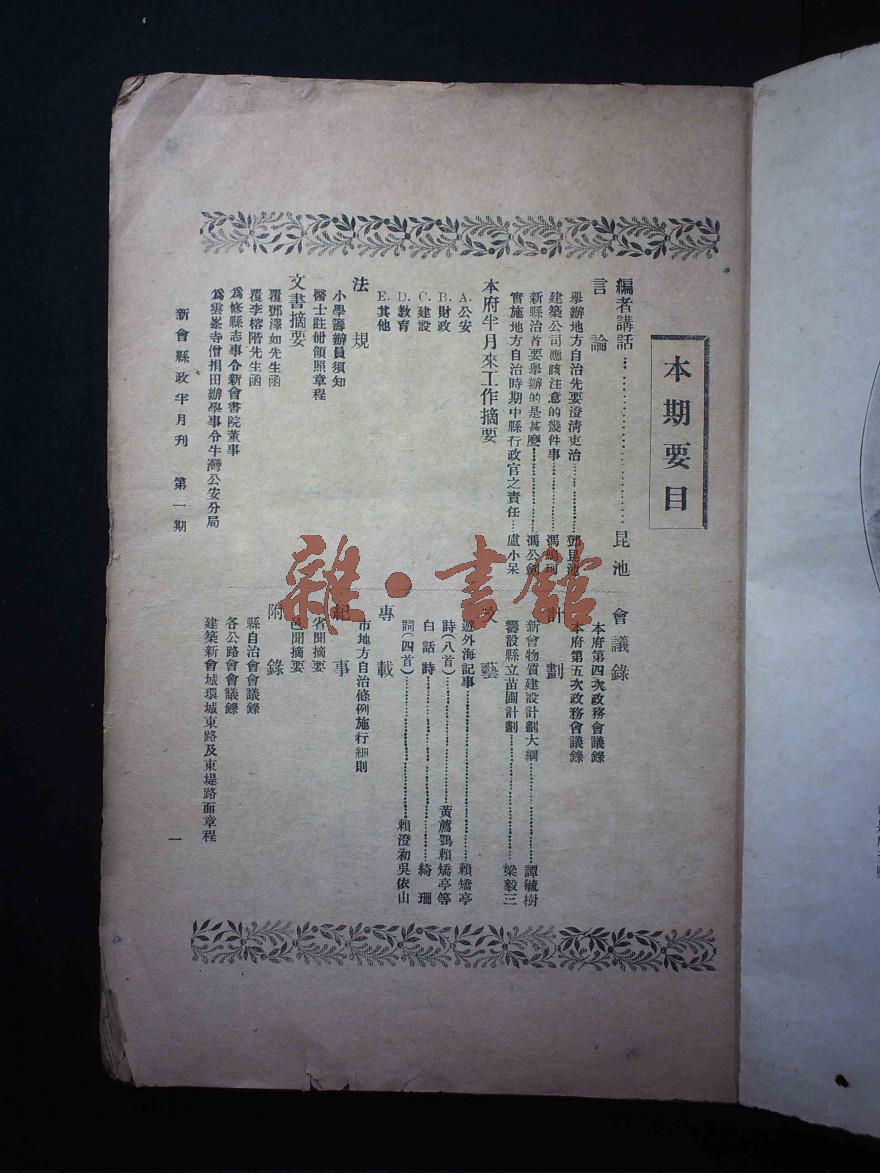 本期要目
編者講話…………………昆池
言論
舉辦地方自治先要澄清吏治……鄧昆池
建築公司應該注意的幾件事……馮鳴珂
新縣治首要舉辦的是甚麽………馮公劍
實施地方自治時期中縣行政官之責任…盧小呆
本府半月來工作摘要
A.公安
B.財政
C.建設
D.教育
E.其他
法規
小學籌辦員須知
醫士註册領照章程
文書摘要
覆鄧澤如先生函
覆李榕階先生函
爲修縣志事令新會書院董事
爲雲峯寺僧捐田辦學事令牛灣公安分局
會議錄
本府第四次政務會議錄
本府第五次政務會議錄
計劃
新會物質建設計劃大綱………譚毓樹
籌設縣立苗圃計劃………梁毅三
文藝
遊外海記事………賴矯亭
詩(八首)………黃鷹鶚賴矯亭等
白話詩………綺珊
詞(四首)………賴澄初吳依山
專載
市地方自治條例施行細則
紀事
省聞摘要
邑聞摘要
附錄
縣自治會會議錄
各公路會會議錄
建築新會城環城東路及東堤路面章程
新會縣政半月刊 第一期
一
雜·書館